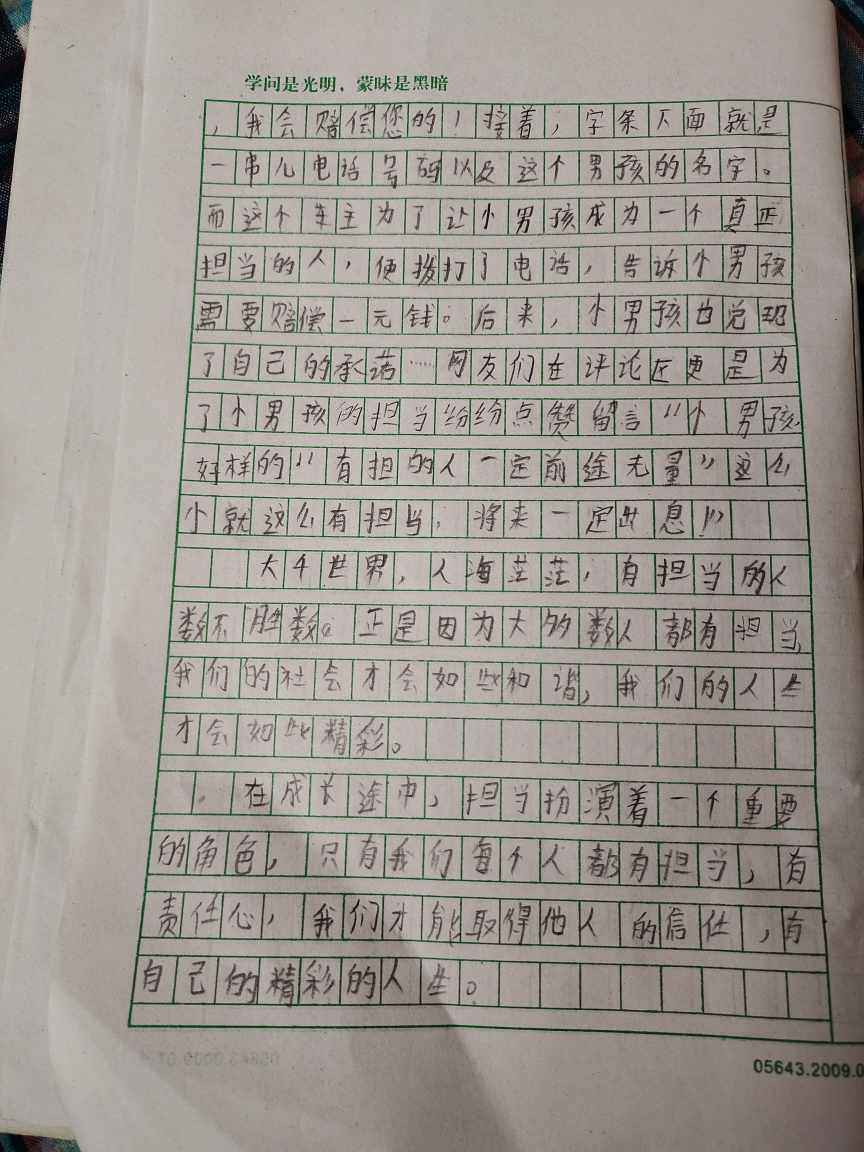 学问是光明，蒙昧是黑暗
，我会赔偿您的！接着，字条下面就是
一串儿电话号码以及这个男孩的名字。
而这个车主为了让小男孩成为一个真正
担当的人，便拨打了电话，告诉小男孩
需要赔偿一元钱。后来，小男孩也兑现
了自己的承诺……网友们在评论区更是为
了小男孩的担当纷纷点赞留言“小男孩
好样的”“有担的人一定前途无量”这么
小就这么有担当，将来一定出息”
大千世界，人海茫茫，有担当的人
数不胜数。正是因为大的数人都有担当，
我们的社会才会如此和谐，我们的人生
才会如此精彩。
在成长途中，担当扮演着一个重要
的角色，只有我们每个人都有担当，有
责任心，我们才能取得他人的信任，有
自己的精彩的人生。
05643.2009.0